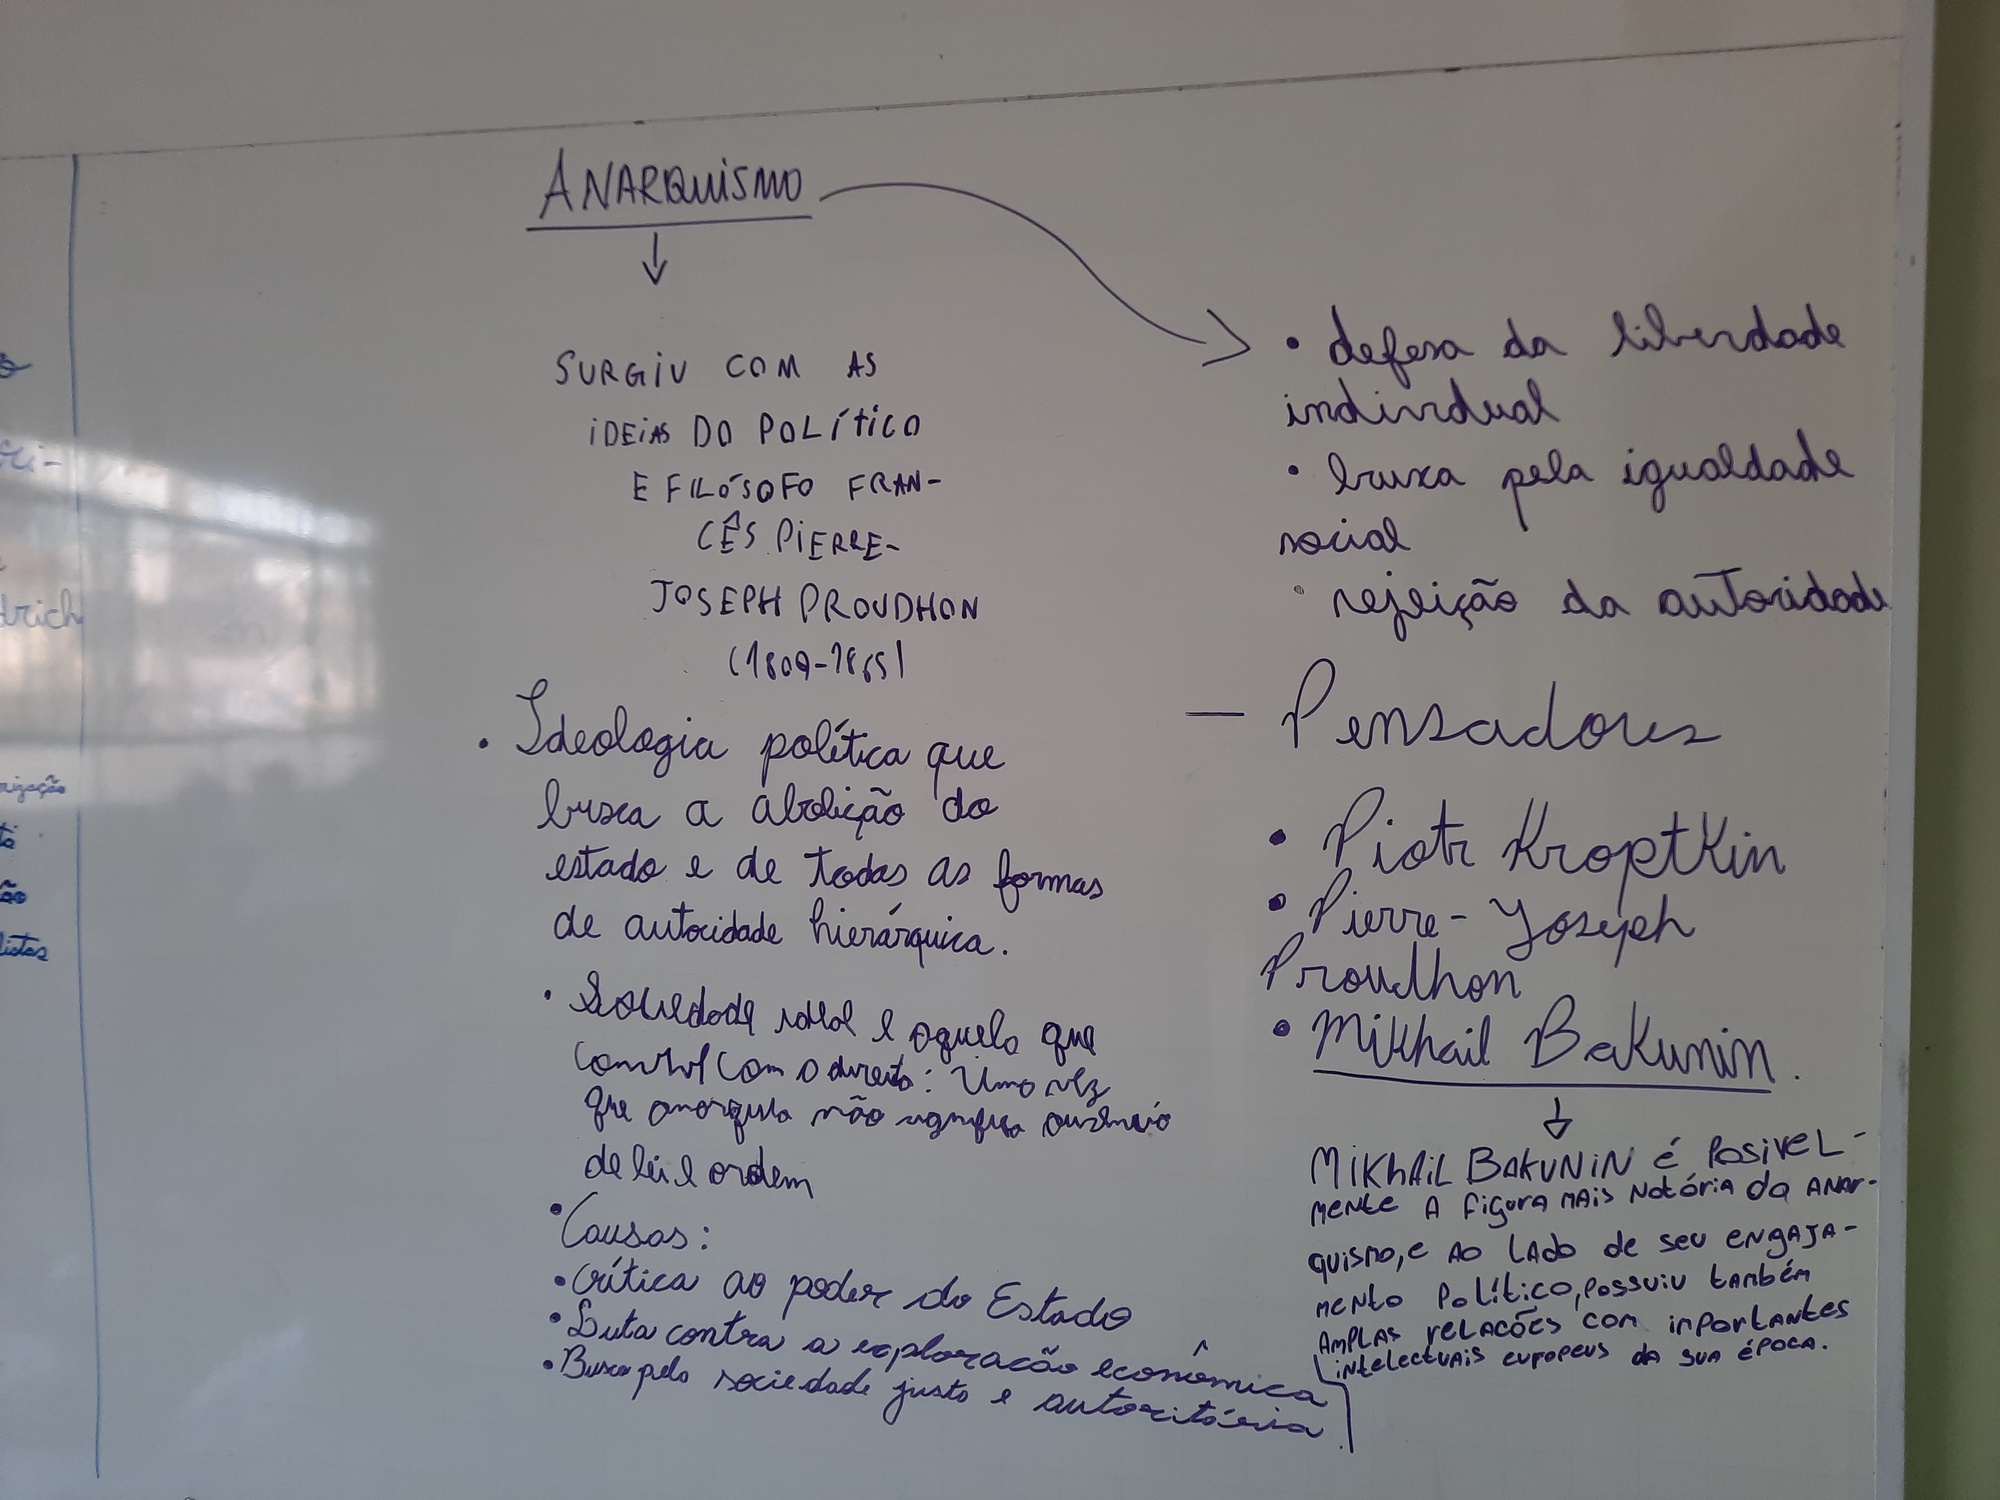 ANARQUISMO
SURGIU COM AS
IDEIAS DO POLÍTICO
E FILÓSOFO FRAN-
CÊS PIERRE-
JOSEPH PROUDHON
(1809-1865)
• Ideologia política que
busca a abolição do
estado e de todas as formas
de autoridade hierárquica.
• Sociedade ideal e aquela que
com o direito: Uma vez
que anarquia não significa ausência
de lei e ordem
• Causas:
• Crítica ao poder do Estado
• Luta contra a exploracão econômica
• Busca pela sociedade justa e autoritária
• defesa da liberdade
individual
• busca pela igualdade
social
• rejeição da autoridade
— Pensadores
• Piotr Kroptkin
• Pierre-Joseph
Proudhon
• Mikhail Bakunin.
MIKHAIL BAKUNIN É POSIVEL-
MENTE A FIGURA MAIS NOTÓRIA DO ANAR-
QUISMO, E AO LADO DE SEU ENGAJA-
MENTO POLÍTICO, POSSUIU TAMBÉM
AMPLAS RELACÕES COM INPORTANTES
INTELECTUAIS EUROPEUS DA SUA ÉPOCA.
drich
ização
ão
listas